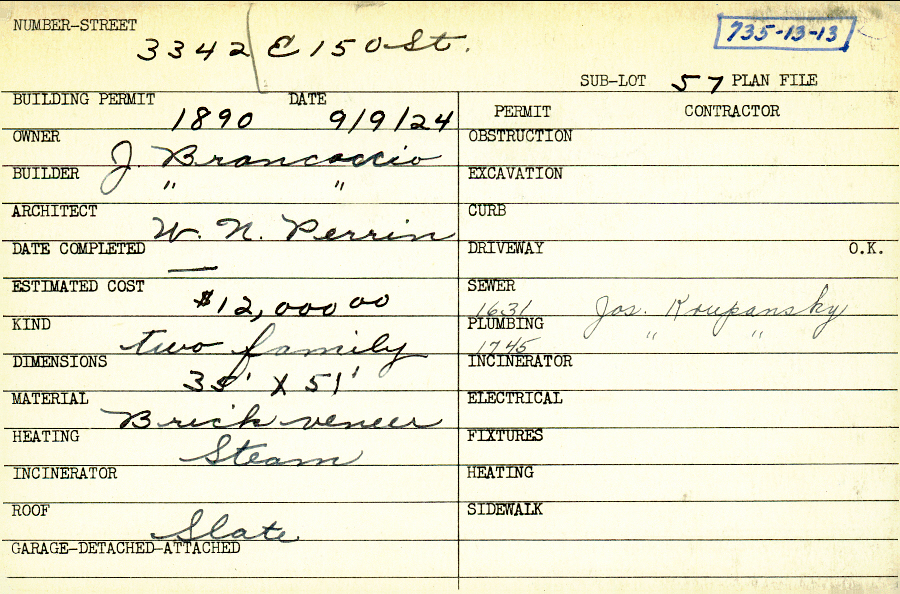 NUMBER-STREET
3342 E 150 St.
735-13-13
SUB-LOT 57 PLAN FILE
BUILDING PERMIT 1890 DATE 9/9/24
PERMIT CONTRACTOR
OWNER J. Brancaccio
OBSTRUCTION
BUILDER " "
EXCAVATION
ARCHITECT W. N. Perrin
CURB
DATE COMPLETED —
DRIVEWAY O.K.
ESTIMATED COST $12,000 00
SEWER 1631 Jos. Koupansky
KIND two family
PLUMBING 1745 " "
DIMENSIONS 35' X 51'
INCINERATOR
MATERIAL Brick veneer
ELECTRICAL
HEATING Steam
FIXTURES
INCINERATOR
HEATING
ROOF Slate
SIDEWALK
GARAGE-DETACHED-ATTACHED